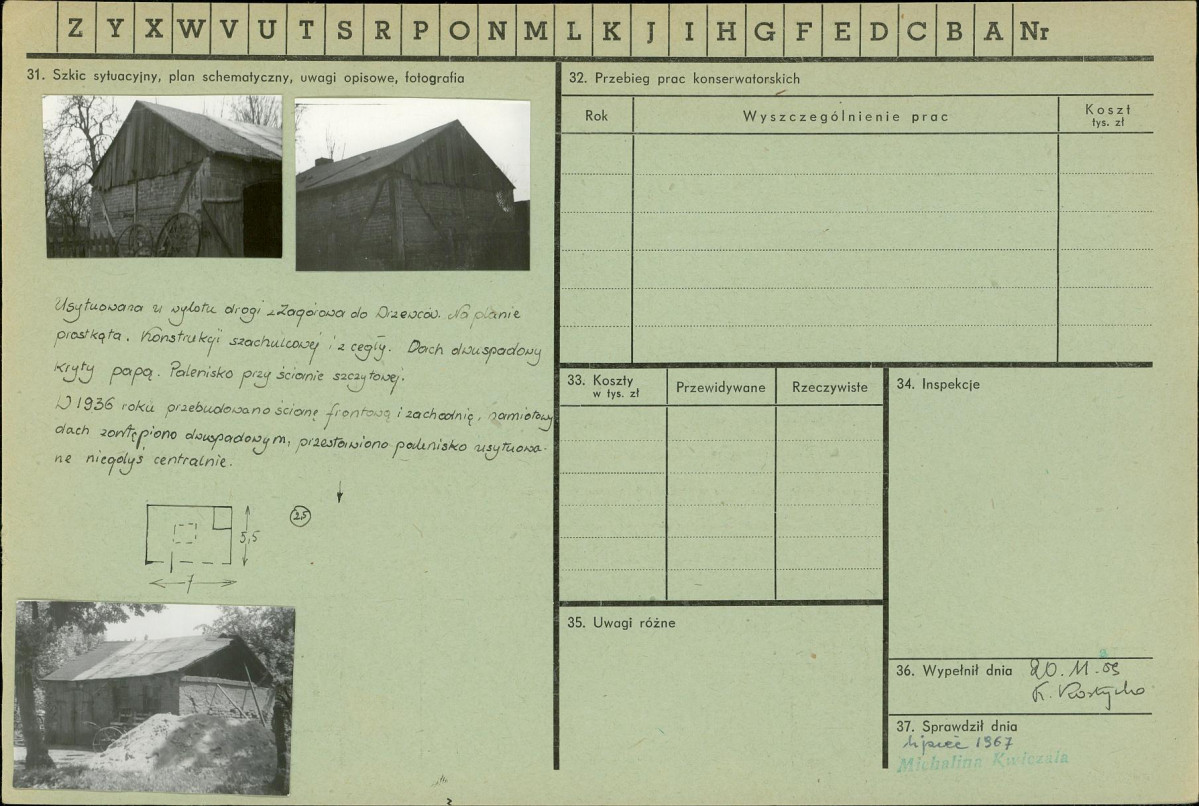 Z Y X W V U T S R P O N M L K J I H G F E D C B A Nr
31. Szkic sytuacyjny, plan schematyczny, uwagi opisowe, fotografia
Usytuowana u wylotu drogi z Zagórowa do Drzewców. Na planie
prostkąta. Konstrukcji szachulcowej i z cegły. Dach dwuspadowy
kryty papą. Palenisko przy ścianie szczytowej.
W 1936 roku przebudowano ścianę frontową i zachodnią, namiotowy
dach zastępiono dwuspadowym, przestawiono palenisko usytuowa-
ne niegdyś centralnie.
25
5,5
7
32. Przebieg prac konserwatorskich
Rok Wyszczególnienie prac Koszt
tys. zł
33. Koszty
w tys. zł
Przewidywane Rzeczywiste
34. Inspekcje
35. Uwagi różne
36. Wypełnił dnia 20.11.
37. Sprawdził dnia
lipiec 1967
Michalina Kwiczala